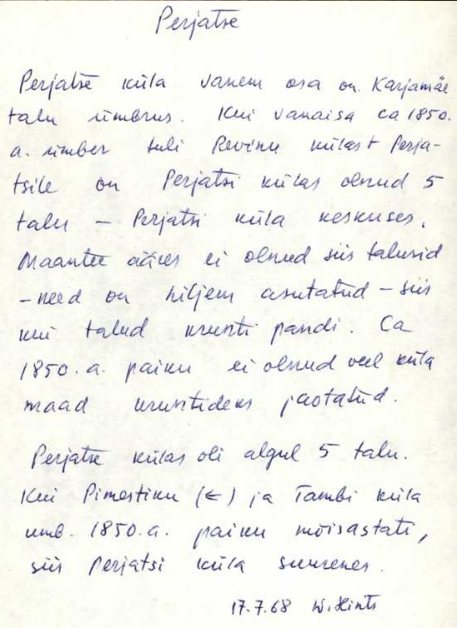 Perjatse
Perjatse küla vanem osa on Karjamäe
talu ümbrus. Kui vanaisa ca 1850.
a. ümber tuli Revinu külast Perja-
tsile on Perjatsi külas olnud 5
talu – Perjatsi küla keskuses.
Maantee ääres ei olnud siis talusid
– need on hiljem asutatud – siis
kui talud krunti pandi. Ca
1850. a. paiku ei olnud veel küla
maad kruntideks jaotatud.
Perjatse külas oli algul 5 talu.
Kui Pimestiku (←) ja Tambi küla
umb. 1850. a. paiku mõisastati,
siis Perjatsi küla suurenes.
17.7.68 W. Hints